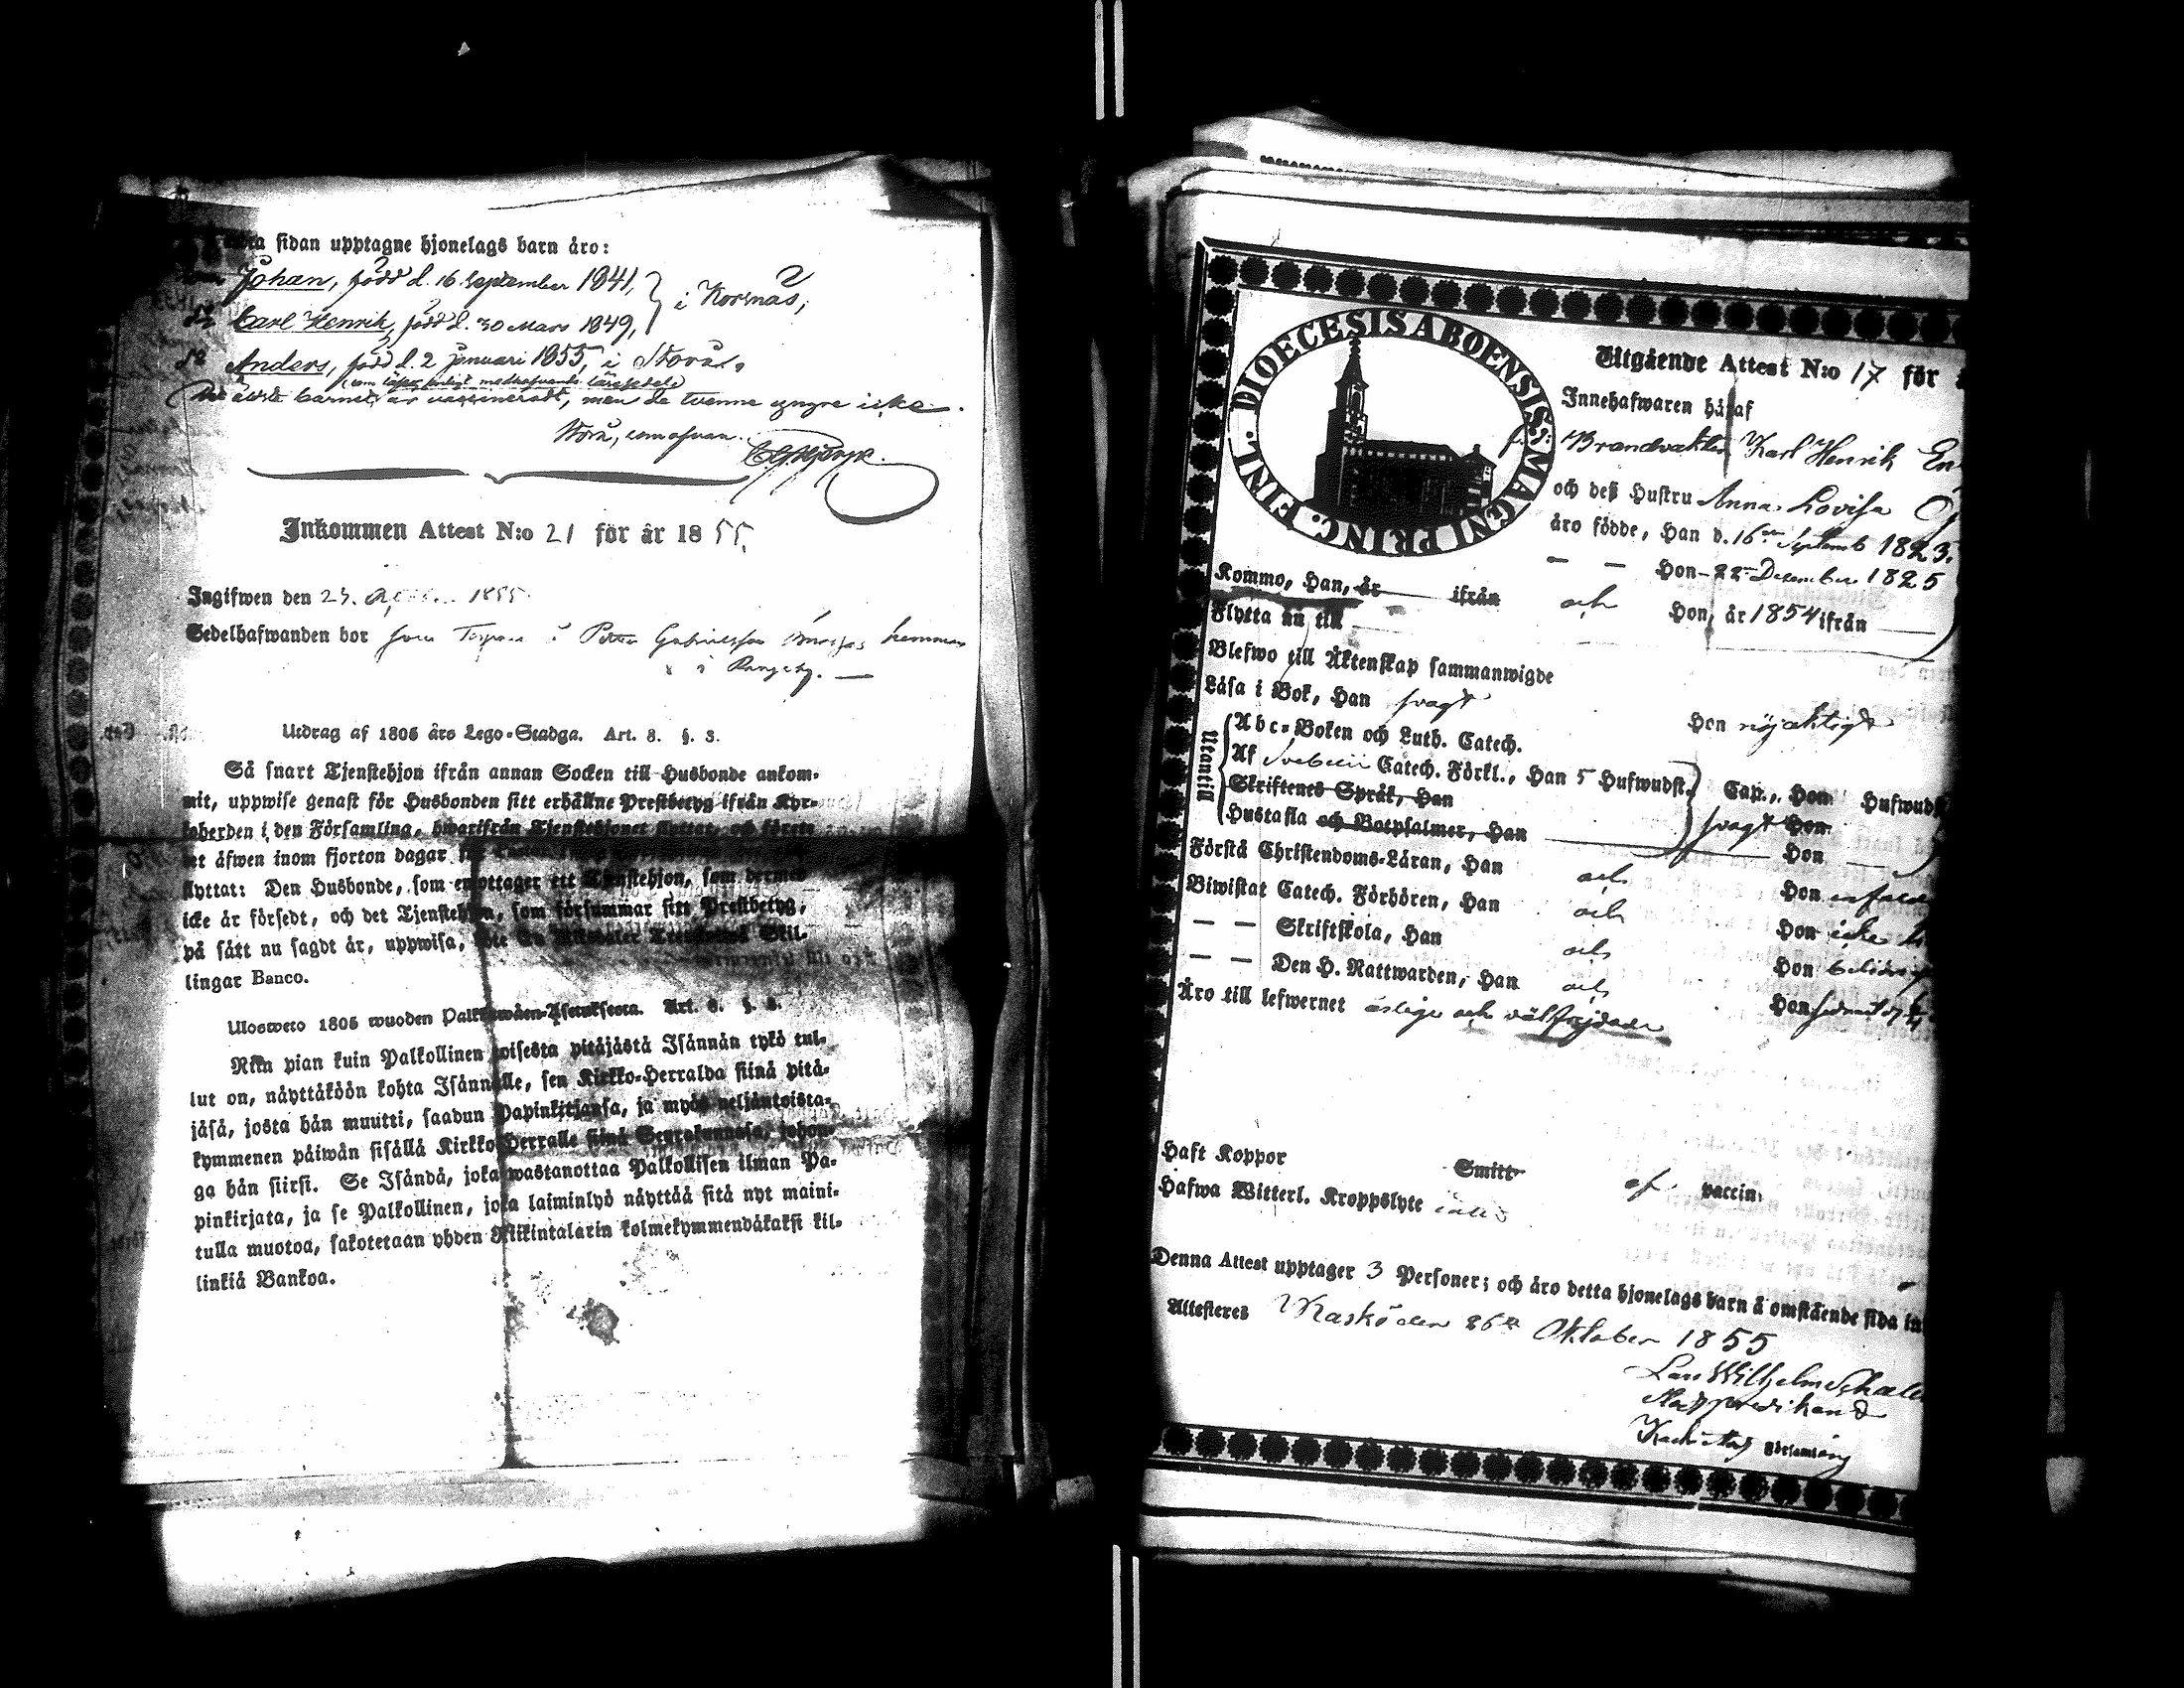 sidan upptagne hjonelags barn äro:
Johan, född d. 16 September 1841,
Carl Henrik, född d. 30 Mars 1849,
i Korsnäs,
Anders, född d. 2 Januari 1855, i Storå.
äldsta barnet är vaccineradt, men de tvenne yngre icke.
Storå, som ofvan.
Inkommen Attest N:o 21 för år 1855.
Ingifwen den 23. 1855
Sedelhafwanden bor som i Petter hemman
i
Utdrag af 1805 års Lego-Stadga. Art. 8. §. 3.
Så snart Tjenstehjon ifrån annan Socken till Husbonde ankom-
mit, uppwise genast för Husbonden sitt erhållne Prestbetyg ifrån Kyr-
koherden i den Församling, hwarifrån Tjenstehjonet flyttat, och förete
det äfwen inom fjorton dagar
flyttat: Den Husbonde, som emottager ett Tjenstehjon, som dermed
icke är försedt, och det Tjenstehjon, som försummar sitt Prestbetyg,
på sätt nu sagdt är, uppwisa, Skil-
lingar Banco.
Ulosweto 1805 wuoden Palkkawäen-Asetuksesta. Art. 8. §.
Niin pian kuin Palkollinen toisesta pitäjästä Isännän tykö tul-
lut on, näyttäköön kohta Isännälle, sen Kirkko-Herralda siinä pitä-
jäsä, josta hän muutti, saadun Papinkirjansa, ja myös neljäntoista-
kymmenen päiwän sisällä Kirkko-Herralle siinä Seurakunnasa, johon-
ga hän siirsi. Se Isändä, joka wastanottaa Palkollisen ilman Pa-
pinkirjata, ja se Palkollinen, joka laiminlyö näyttää sitä nyt maini-
tulla muotoa, sakotetaan yhden Riikintalarin kolmekymmendäkaksi kil-
linkiä Bankoa.
DIOECESIS ABOENSIS MAGNI PRINC. FINL.
Utgående Attest N:o 17 för
Innehafwaren häraf
Brandvakten Karl Henrik
och deß Hustru Anna Lovisa
äro födde, Han d. 16 Septemb 1823.
— — Hon 22 Desember 1825
Kommo, Han, år ifrån och Hon, år 1854 ifrån
Flytta nu till
Blefwo till Äktenskap sammanwigde
Läsa i Bok, Han svagt Hon nöjaktigt
Utantill
Abc-Boken och Luth. Catech.
Af Svebelii Catech. Förkl., Han 5 Hufwudst. Cap., Hon Hufwudst
Skriftenes Språk, Han svagt Hon
Hustafla och Botpsalmer, Han Hon
Förstå Christendoms-Läran, Han och Hon
Biwistat Catech. Förhören, Han och Hon icke
— — Skriftskola, Han och Hon
— — Den H. Nattwarden, Han och Hon
Äro till lefwernet ärlige och välfrejdade
Haft Koppor Smitt af vaccin.
Hafwa Witterl. Kroppslyte
Denna Attest upptager 3 Personer; och äro detta hjonelags barn å omstående sida
Attesteres Kaskö den 26 Oktober 1855
Lars Wilhelm
Församling